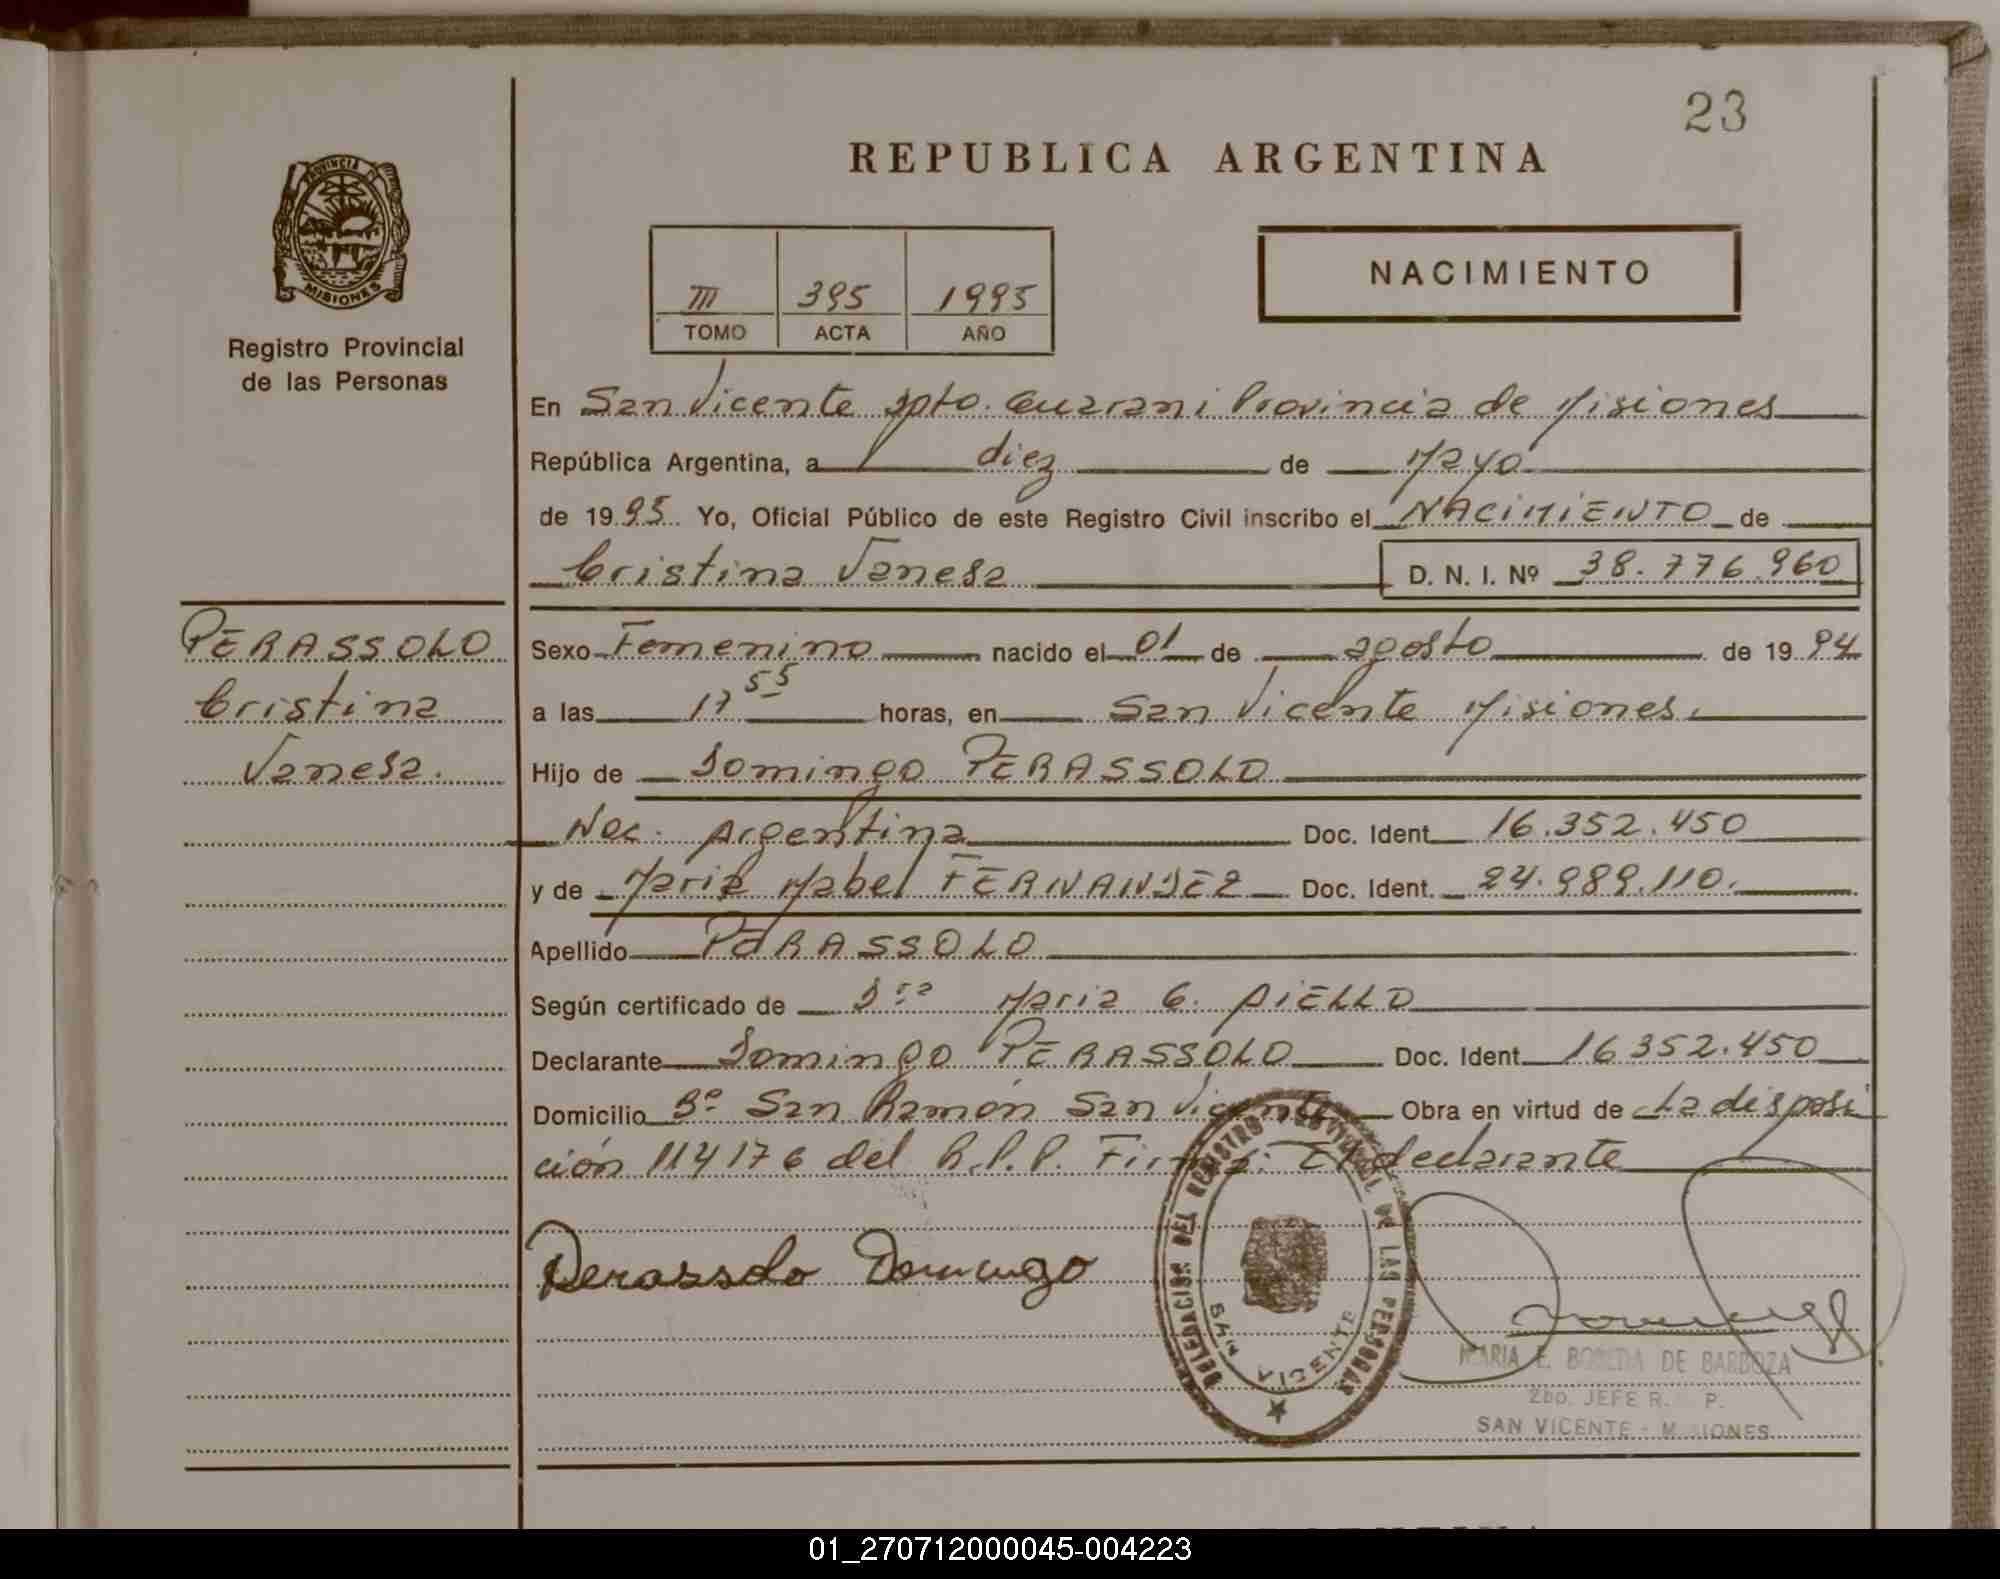 23
REPUBLICA ARGENTINA
PROVINCIA DE
MISIONES
Registro Provincial
de las Personas
III 395 1995
TOMO ACTA AÑO
NACIMIENTO
En San Vicente Dpto. Guarani Provincia de Misiones
República Argentina, a diez de Mayo
de 1995 Yo, Oficial Público de este Registro Civil inscribo el NACIMIENTO de
Cristina Vanesa D. N. I. Nº 38.776.960
PERASSOLO
Cristina
Vanesa.
Sexo Femenino nacido el 01 de agosto de 1994
a las 17 55 horas, en San Vicente Misiones.
Hijo de Domingo PERASSOLO
Nac. Argentina Doc. Ident. 16.352.450
y de Maria Mabel FERNANDEZ Doc. Ident. 24.989.110.
Apellido PERASSOLO
Según certificado de Dra Maria C. AIELLO
Declarante Domingo PERASSOLO Doc. Ident. 16 352.450
Domicilio Bº San Ramón San Vicente Obra en virtud de La disposi
ción 114176 del R.P.P. Firma: El declarante
Perassolo Domingo
DELEGACION DEL REGISTRO PROVINCIAL DE LAS PERSONAS
SAN VICENTE
MARIA E. DE BARBOZA
2DO. JEFE R. P.
SAN VICENTE - MISIONES
01_270712000045-004223